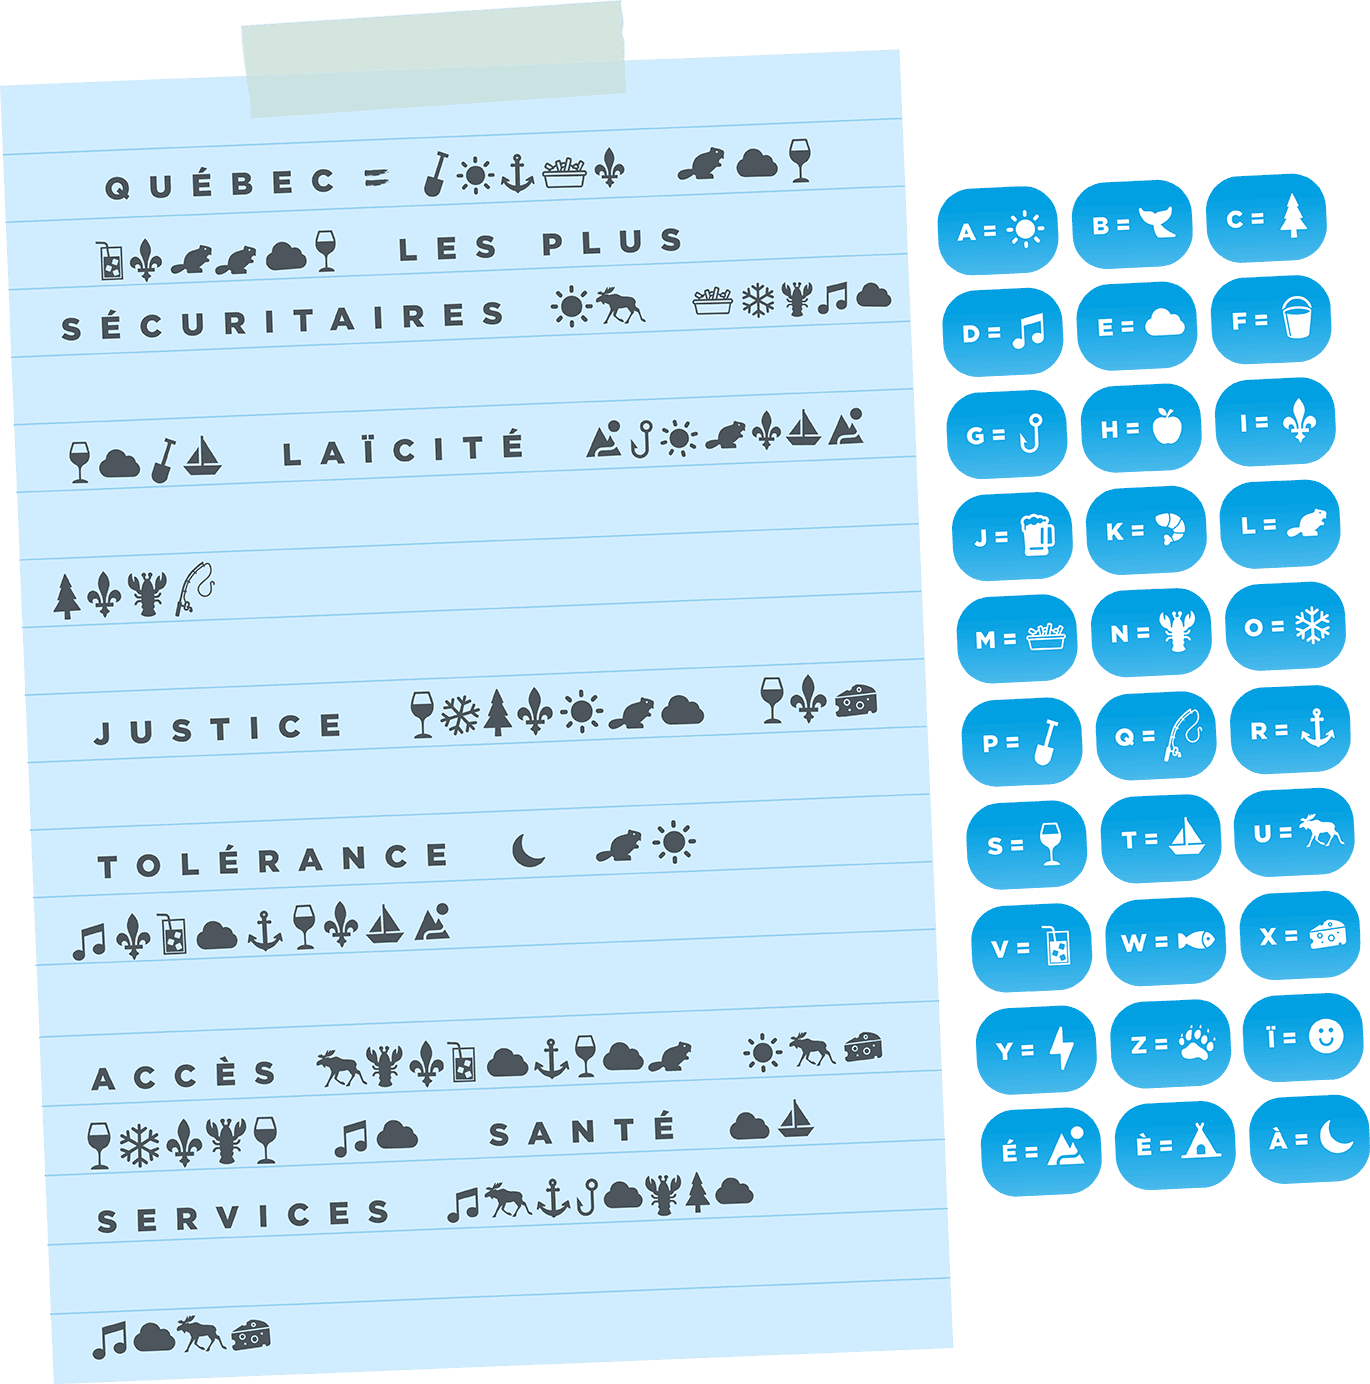 QUÉBEC =
LES PLUS
SÉCURITAIRES
LAÏCITÉ
JUSTICE
TOLÉRANCE
ACCÈS
SANTÉ
SERVICES
A = B = C =
D = E = F =
G = H = I =
J = K = L =
M = N = O =
P = Q = R =
S = T = U =
V = W = X =
Y = Z = Ï =
É = È = À =